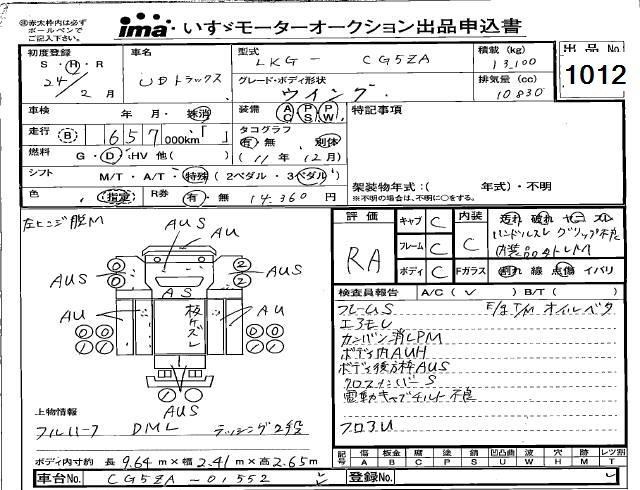 ※赤太枠内は必ず
ボールペンで
ご記入下さい。
ima いすゞモーターオークション出品申込書
初度登録
S・H・R
24年 2月
車名
UDトラックス
型式
LKG - CG5ZA
積載 (kg)
13,100
グレード・ボディ形状
ウイング
排気量 (cc)
10830
出品No
1012
車検
年 月・抹消
装備
AC PS PW
特記事項
走行
B 657 000km
タコグラフ
有・無 別体
(11年12月)
燃料
G・D・HV 他( )
シフト
M/T・A/T・特殊(2ペダル・3ペダル)
色
(指定)
R券
有・無 14,360円
架装物年式：( 年式)・不明
※不明の場合は、不明に○をする。
左ヒンジ脱M
AUS
AU
AUS
AUS
AS
AU
AU
板ゲズレ
AUS
0 0
2 2
0 0
1 1
0 0
1 1
1 1
評価
RA
キャブ C
フレーム C
ボディ C
内装
C
汚れ 破れ ヤニ スレ
ハンドルスレ グリップ不良
内装品外レM
Fガラス 割れ 線 点傷 イバリ
検査員報告 A/C( V ) B/T( )
フレームS E/g T/M オイルベタ
エアモレ
カンバン消LPM
ボディ内AUH
ボディ後方枠AUS
クロスメンバーS
電動キャブチルト不良
フロアU
上物情報
フルハーフ DML ラッシング2段
ボディ内寸約 長 9.64m×幅 2.41m×高 2.65m
記号 傷A 板金B 腐C 塗P 錆S 凹凸曲U 波W 穴H 跡M レツ割T
車台No. CG5ZA-01552
登録No.